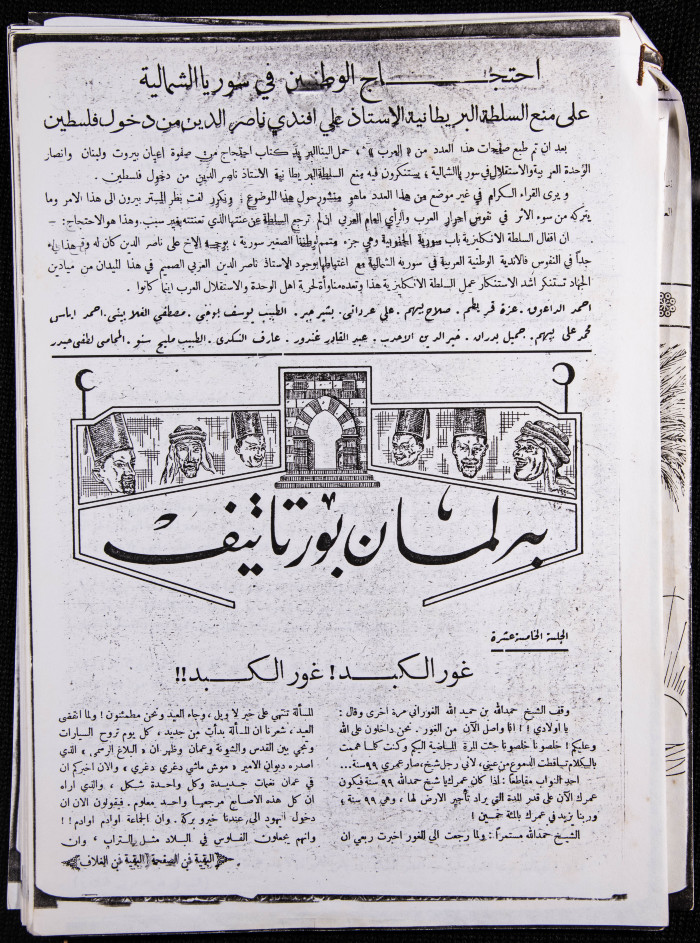 احتجـــاج الوطنيين في سوريا الشمالية
على منع السلطة البريطانية الاستاذ علي افندي ناصر الدين من دخول فلسطين
بعد ان تم طبع صفحات هذا العدد من « العرب » ، حمل الينا البريد كتاب احتجاج من صفوة اعيان بيروت ولبنان وانصار
الوحدة العربية والاستقلال في سوريا الشمالية ، يستنكرون فيه منع السلطة البريطانية الاستاذ ناصر الدين من دخول فلسطين .
و يرى القراء الكرام في غير موضع من هذا العدد ما هو منشور حول هذا الموضوع ; ونكرر لفت نظر المستر بيرون الى هذا الامر وما
يتركه من سوء الاثر في نفوس احرار العرب والرأي العام العربي ان لم ترجع السلطة عن عنتها الذي تعنتته بغير سبب. وهذا هو الاحتجاج: —
ان اقفال السلطة الانكليزية باب سورية الجنوبية وهي جزء ومتمم لوطننا الصغير سورية ، بوجه الاخ علي ناصر الدين كان له وقع
جداً في النفوس فالاندية الوطنية العربية في سوريه الشمالية مع اغتباطها بوجود الاستاذ ناصر الدين العربي الصميم في هذا الميدان من ميادين
الجهاد تستنكر اشد الاستنكار عمل السلطة الانكليزية هذا وتعده مناوأة لحرية اهل الوحدة والاستقلال العرب اينما كانوا .
احمد الداعوق . عزة قريطم . صلاح بيهم . علي عرداتي . بشير جبر . الطبيب يوسف . مصطفى الغلاييني . احمد اياس
محمد علي بيهم . جميل بدران . خير الدين الاحدب . عبد القادر غندور . عارف النكدي . الطبيب مليح سنو . المحامي لطفي حيدر
برلمان بورتاتيف
الجلسة الخامسة عشرة
غور الكبـــد ! غور الكـــبد !!
وقف الشيخ حمدالله بن حميد الله الغوراني مرة اخرى وقال :
يا اولادي ! ! انا واصل الآن من الغور . نحن داخلون على الله
وعليكم ! خلصونا خلصونا جئت المرة الماضية اليكم وكنت كلما هممت
بالكلام تساقطت الدموع من عيني ، لاني رجل شيخ ، صار عمري ٩٩ سنة ...
احد النواب مقاطعاً : لذا كان عمرك يا شيخ حمدالله ٩٩ سنة فيكون
عمرك الآن على قدر المدة التي يراد تأجير الارض لها ، وهي ٩٩ سنة ؛
وربنا يزيد في عمرك بالمئة خمسين !
الشيخ حمدالله مستمراً : ولما رجعت الى الغور اخبرت ربعي ان
المسألة تنتهي على خير لا ويل ، وجاء العيد ونحن مطمئنون ! ولما انقضى
العيد ، شعرنا ان المسألة بدأت من جديد ، كل يوم تروح السيارات
وتجي بين القدس والشونة وعمان وظهر ان « البلاغ الرسمي » الذي
اصدره ديوان الامير « موش ماشي دغري دغري » والان اخبركم ان
في عمان نغمات جديـــدة وكل واحـــدة شـكل ، والذي اراه
ان كل هذه الاصابع مرجعها واحـد معلوم . فيقولون الان ان
دخول اليهود الى عندنا خير و بركة . وان الجماعة اوادم اوادم !!
وانهم يجعلون الفلوس في البلاد مثل التراب ، وان
البقية في الصفحة الثانية من الغلاف